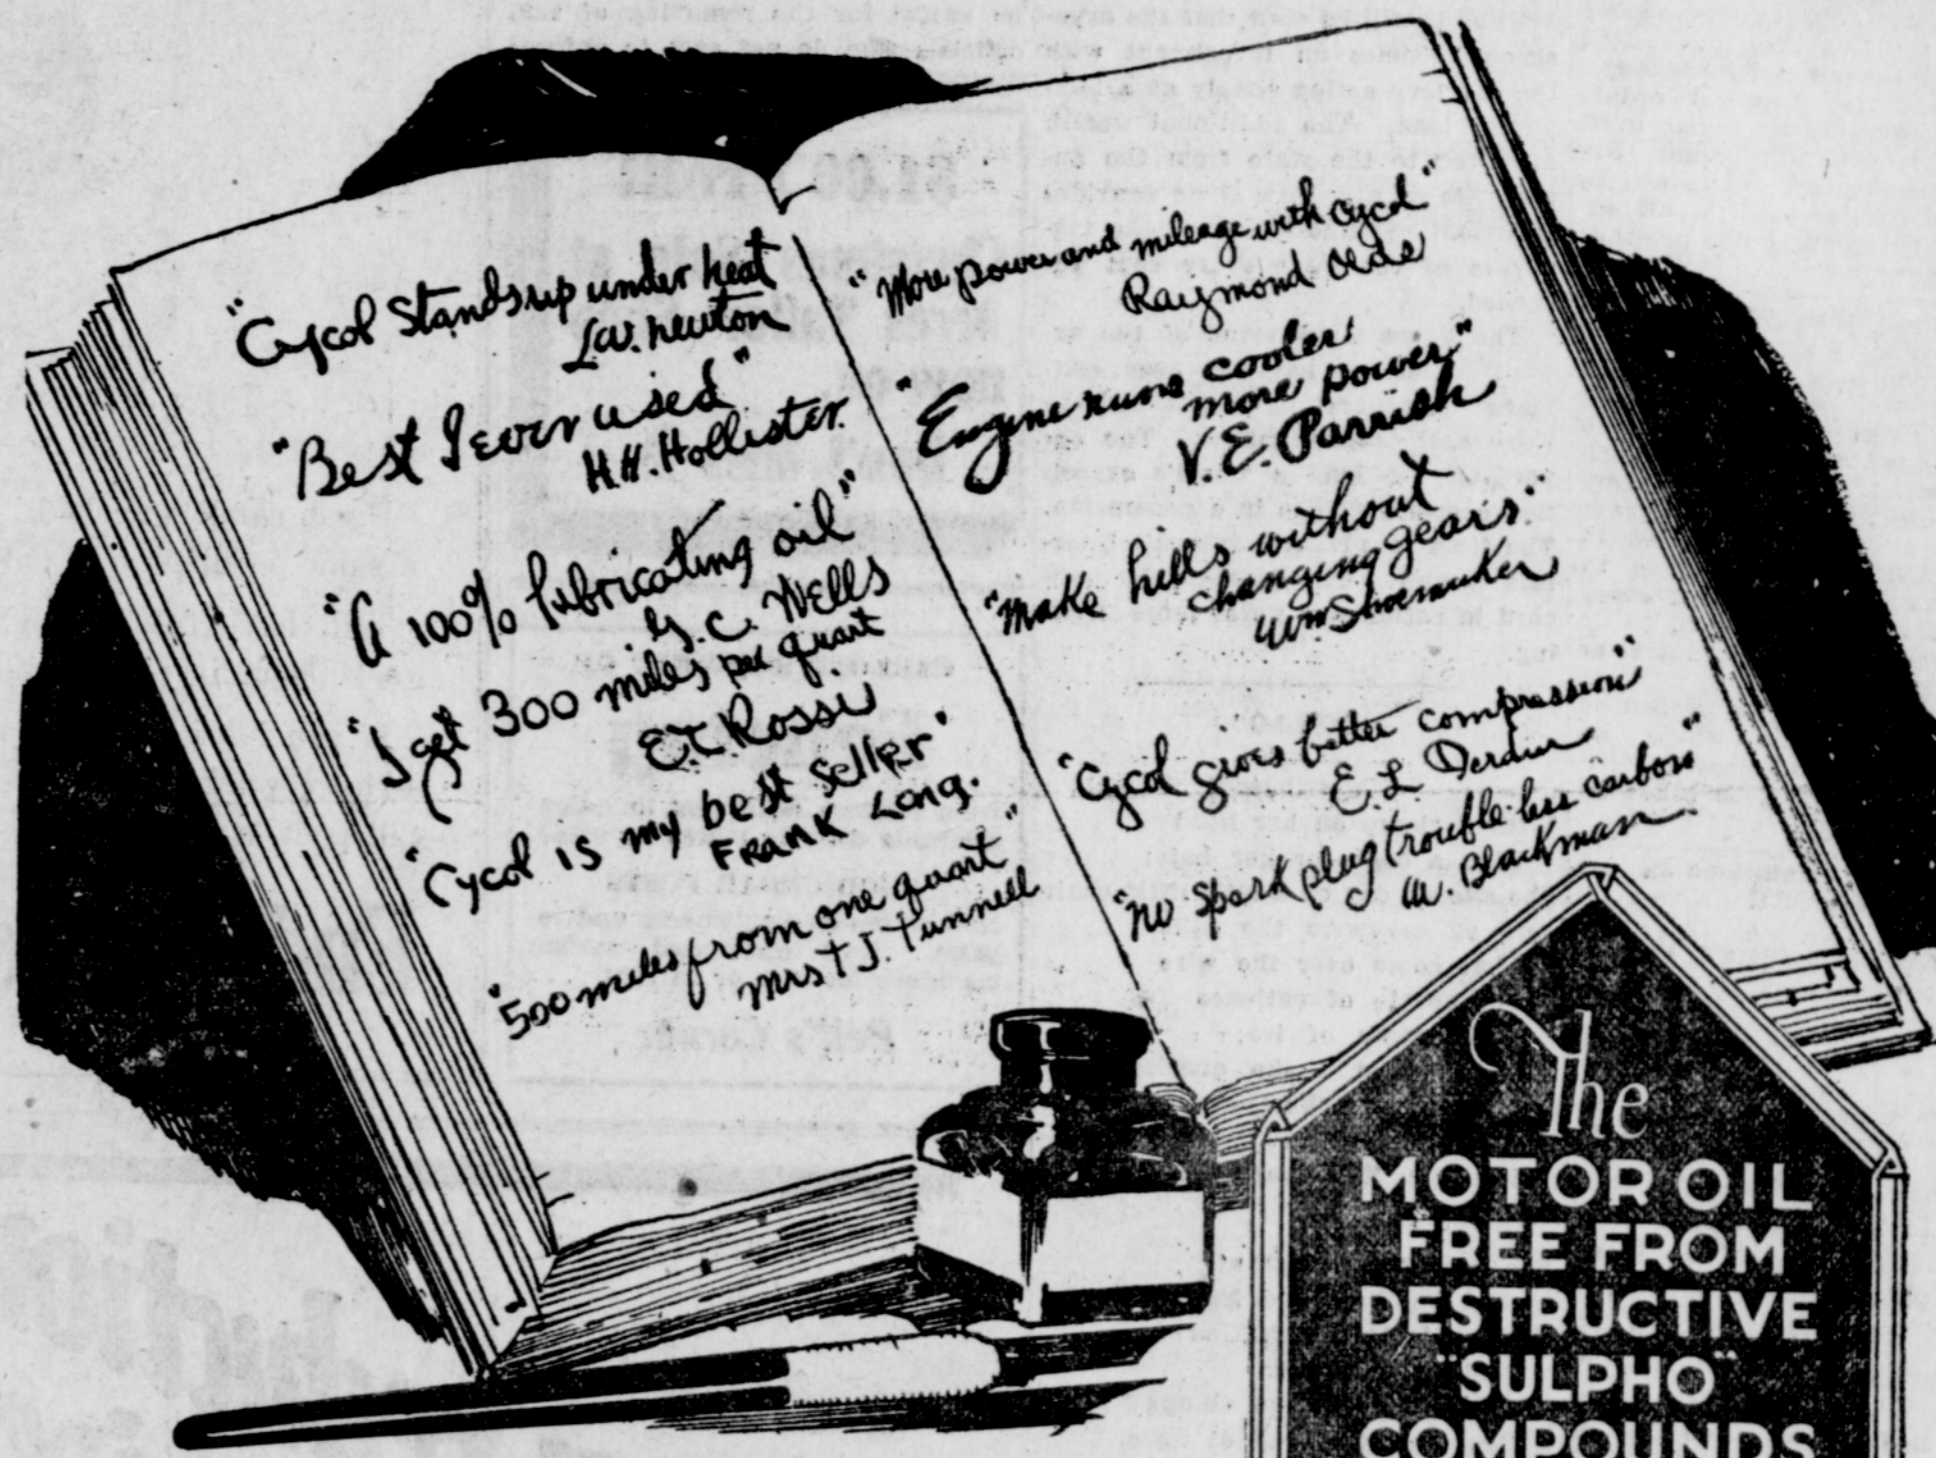 "Cycol Stands up under heat
L.W. Newton
"Best I ever used"
H.H. Hollister.
"A 100% lubricating oil"
G. C. Wells
"I get 300 miles per quart
E.T. Rossi
"Cycol is my best seller"
FRANK Long.
"500 miles from one quart"
Mrs T J. Tunnell
"More power and mileage with Cycol"
Raymond Olds
"Engine runs cooler
more power"
V. E. Parrish
"Make hills without
changing gears."
Wm Shoemaker
"Cycol gives better compression"
E. L.
"No spark plug trouble less carbon"
W. Blackman.
The
MOTOR OIL
FREE FROM
DESTRUCTIVE
"SULPHO"
COMPOUNDS